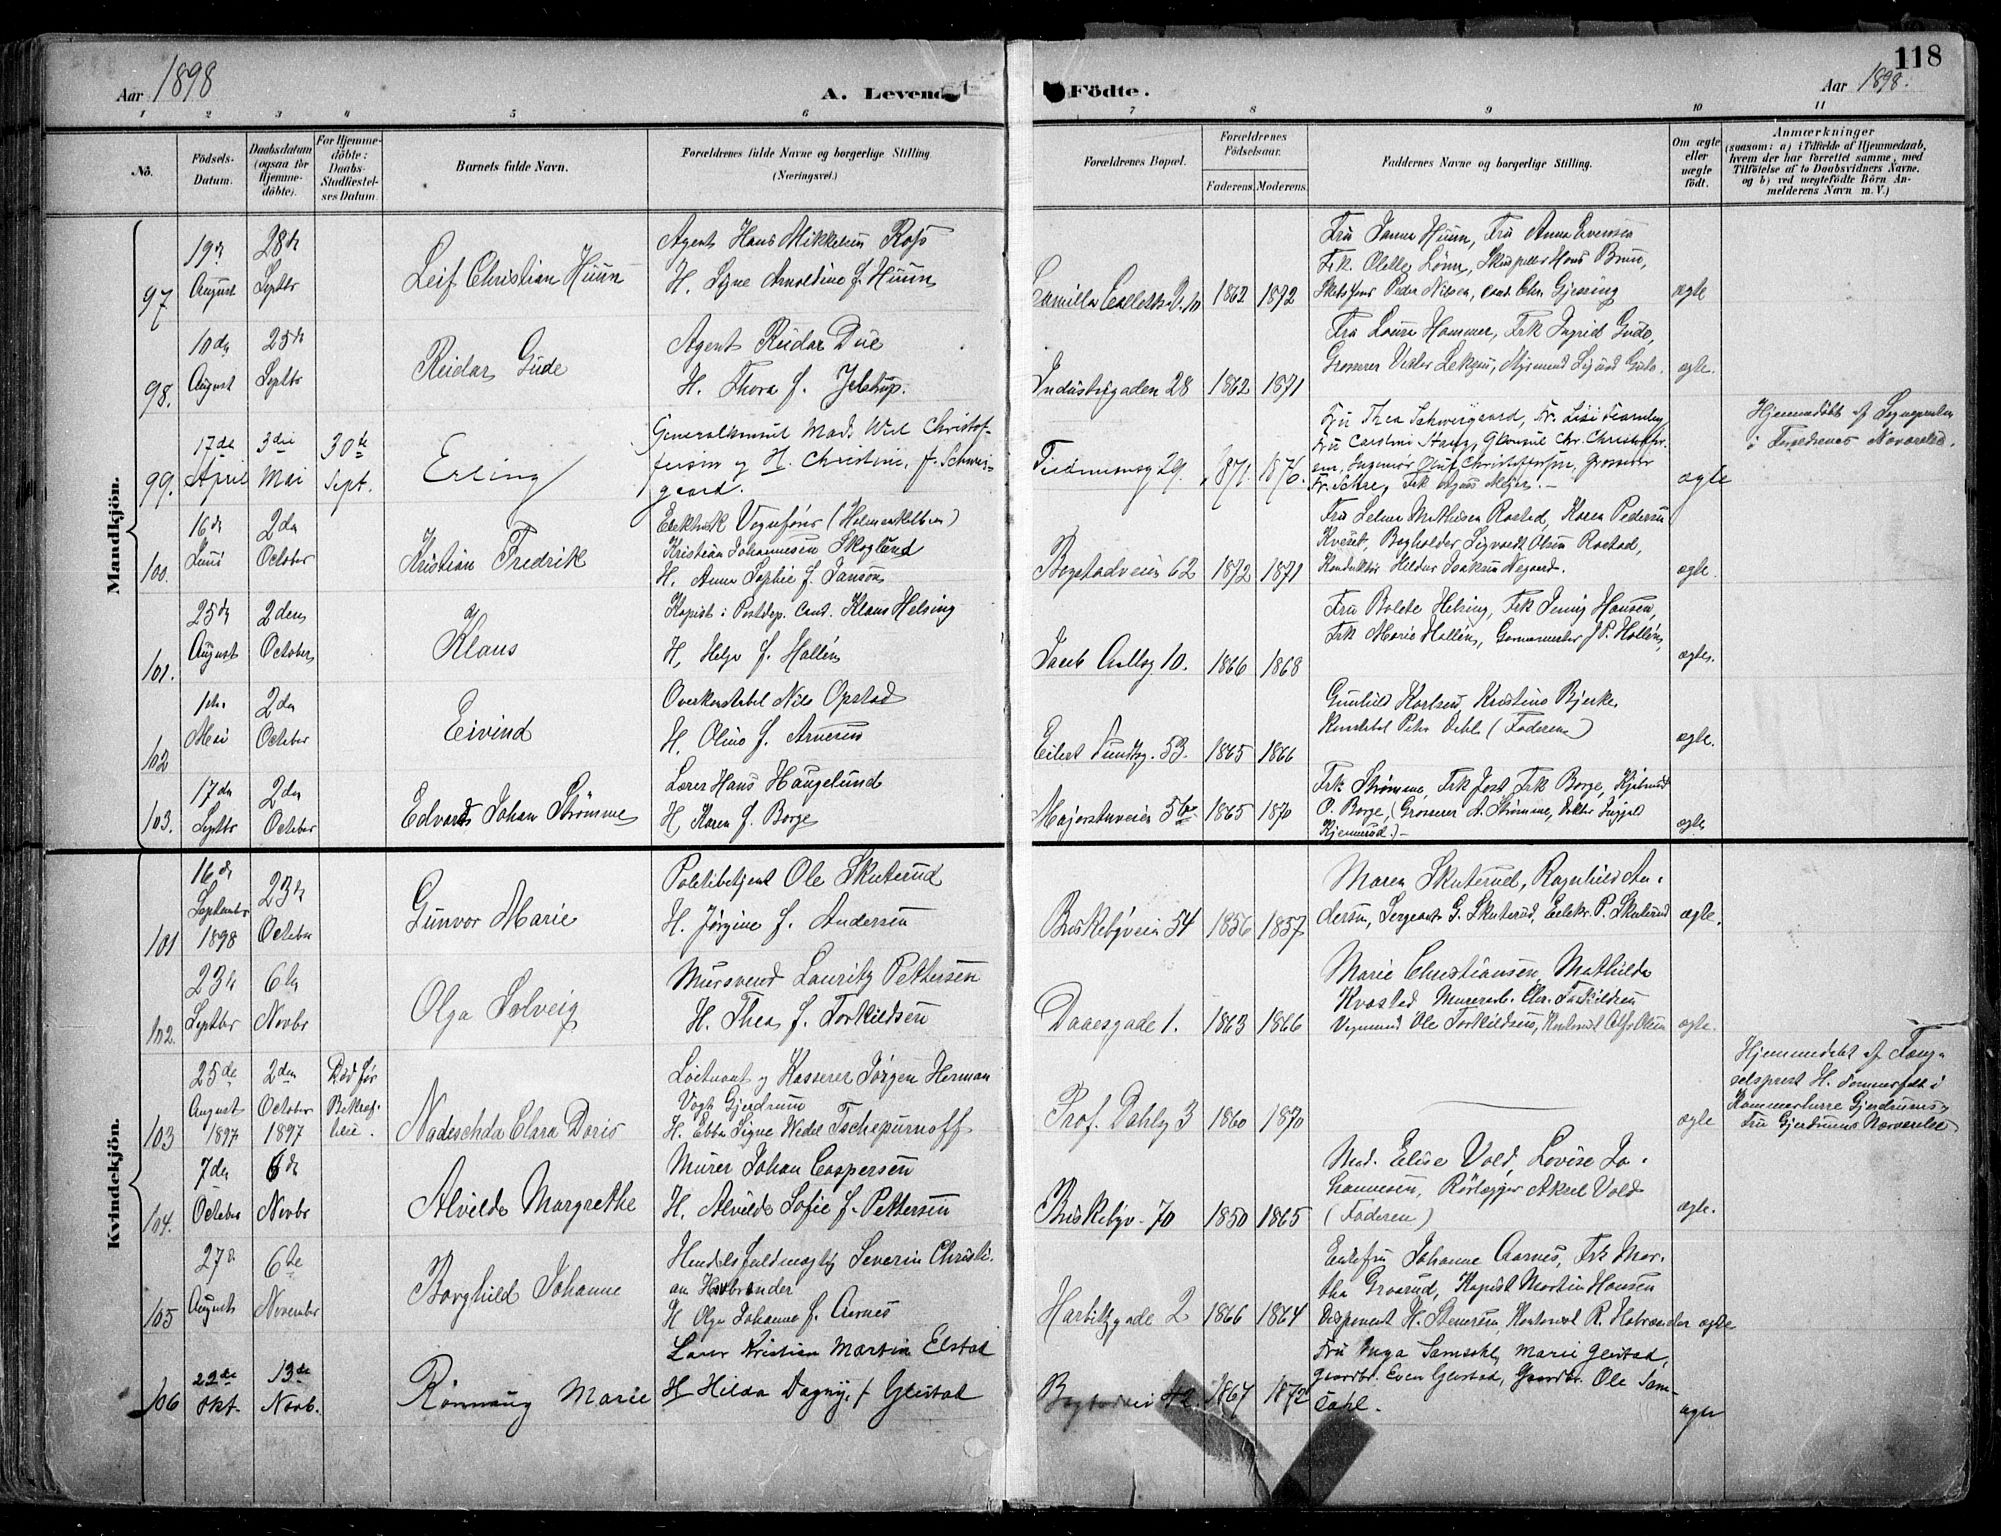 118
Aar 1898
A. Levende Födte.
Aar 1898.
1 2 3 4 5 6 7 8 9 10 11
No.
Födsels-Datum.
Daabsdatum (ogsaa for Hjemmedöbte).
For Hjemmedöbte: Daabs-Stadfæstelses Datum.
Barnets fulde Navn.
Forældrenes fulde Navne og borgerlige Stilling (Næringsvei.)
Forældrenes Bopæl.
Forældrenes Födselsaar.
Faderens. Moderens.
Faddernes Navne og borgerlige Stilling.
Om ægte eller uægte födt.
Anmærkninger
(saasom: a) i Tilfælde af Hjemmedaab,
hvem der har forrettet samme, med
Tilföielse af to Daabsvidners Navne,
og b) ved uægtefödte Börn Anmelderens Navn m. V.)
Mandkjön.
97 19de August 28de Septbr
Leif Christian Huun
Agent Hans Mikkelsen Ross
H. Signe Arnoldine f. Huun
Camilla Colletts V. 10 1862 1872
Fru Janna Huun, Fru Anna Evensen
Frk. Olette Lönn, Hans Bruun,
Peder Nilsen, cand. Chr. Gjessing
ægte
98. 10de August 25de Septbr
Reidar Gude
Agent Reidar Due
H. Thora f. Jelstrup.
Industrigaden 28 1862 1871
Fru Laura Hammer, Frk Ingrid Gude,
Grosserer Sigurd Gude.
ægte.
99. 17de April 3die Mai 30te Sept.
Erling
Generalkonsul Mad. Wiel Christoffersen og H. Christine, f. Schweigaard.
29. 1871. 1870.
Fru Thea Schweigaard, Fr. Lisi Fearnley
Chr. Christoffersen, Ingeniør Oluf Christoffersen, Grosserer
ægte
Hjemmedöbt af Sognepresten
i Forældrenes Nærværelse.
100. 16de Juni 2den October
Kristian Fredrik
Elektrisk Vognfører (Holmenkolbanen)
Kristian Johannesen Skoglund
H. Anna Sophie f. Janson
Bogstadveien 62 1872 1871
Fru Selma Mathisen Rostad, Karen Pedersen
Kveset, Bogholder Sigvardt Olsen Rostad,
Konduktör Hildar Isaksen Negaard.
ægte.
101. 25de August 2den October
Klaus
Kopist i Postdep. Cand. Klaus Helsing
H. Helga f. Hallén
Jacob Aallsg 10. 1866 1868
Fru Bolette Helsing, Frk Jenny Hansen,
Frk Marie Hallén, Garvermester J. P. Hallén,
ægte.
102 1ste Mai 2den October
Eivind
Overkonstabel Nils Opstad
H. Oline f. Arnesen
Eilert Sundtsg. 53. 1865 1866
Gunhild Karlsen, Kristine Bjerke
Konstabel Peter Dehl (Faderen)
ægte.
103. 17de Septbr 2den October
Edvard Johan Strömme
Lærer Hans Haugelund
H. Karen f. Borge
Majorstuveien 5 b 1865 1870
Frk Strömme, Frk Jost Frk Borge,
O. Borge, (Grosserer A. Strömme, Doktor
Kjennerud.)
ægte
Kvindekjön.
101 16de September 1898 23de October
Gunvor Marie
Politibetjent Ole Skuterud
H. Jørgine f. Andersen
Briskebyveien 54 1856 1857
Maren Skuterud, Ragnhild Andersen, Sergeant G. Skuterud, Elektr. P. Skuterud
ægte.
102. 23de Septbr 6te Novbr
Olga Solveig
Mursvend Lauritz Pettersen
H. Thea f. Torkildsen
Daaesgade 1. 1863 1866
Marie Christiansen, Mathilde
Kvasted Murerarb. Chr. Torkildsen
Vognmand Ole Torkildsen, Kontorist Alfr Olsen
ægte.
103 25de August 1897 2den October 1897 Död før Bekræftelse.
Nadeschda Clara Doris
Löitnant og Kasserer Jörgen Herman
Vogt Gjerdrum
H. Ebba Signe Wedel Tschepurnoff
Prof. Dahlsg 3 1860 1870
ægte
Hjemmedöbt af Fængselsprest H. Tommerfelt i
Kammerherre Gjerdrums og
Fru Gjerdrums Nærværelse
104. 7de October 6te Novbr
Alvilde Margrethe
Murer Johan Caspersen
H. Alvilde Sofie f. Pettersen
Briskebyv. 70 1850 1865
Mad. Elise Vold, Lovise Johannesen, Rörlægger Aksel Vold
(Faderen)
ægte.
105 27de August 6te November
Borghild Johanne
Handelsfuldmægtig Severin Christian Hobrander
H Olga Johanne f. Aarnes
Harbitzgade 2 1866 1864
Enkefru Johanne Aarnes, Frk Martha Graarud, Kopist Martin Hansen
Disponent H. Stenersen, Kontorist R. Hobrander
ægte
106 22de Okt. 13de Novb.
Rönnaug Marie
Lærer Kristian Martin Elstad
H Hilda Dagny, f Gjestad
Bogstadvei 42. 1867 1872
Fru Inga Samdahl, Marie Gjestad,
gaardbr. Even Gjestad, Gaardbr. Ole Samdahl.
ægte